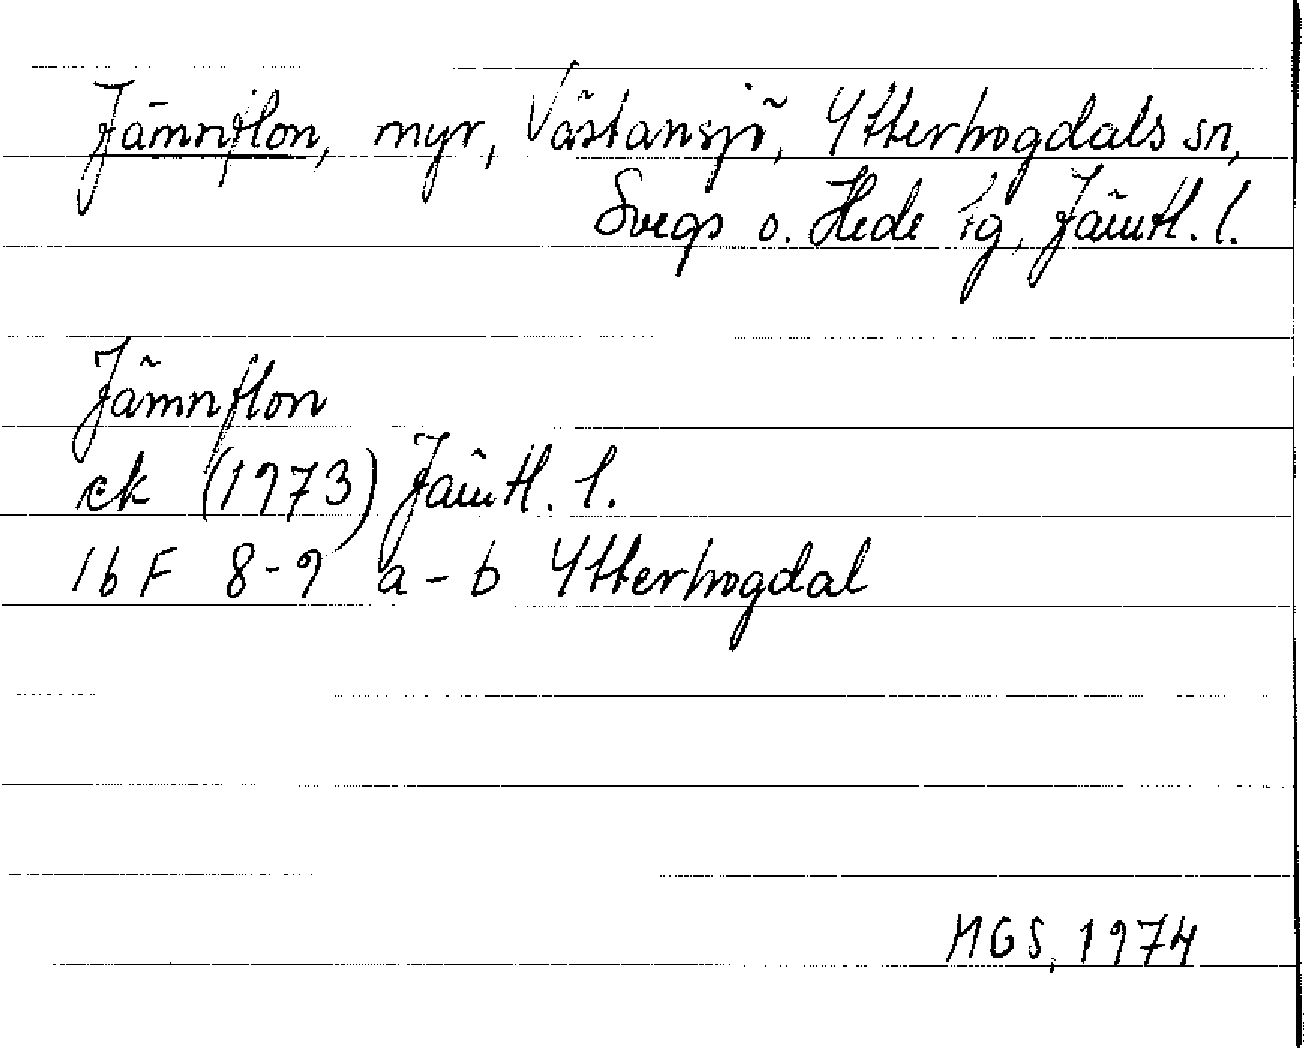 Jämnflon, myr, Västansjö, Ytterhogdals sn,
Svegs o. Hede tg, Jämtl. l.
Jämnflon
ek (1973) Jämtl. l.
16 F 8-9 a-b Ytterhogdal
MGS, 1974